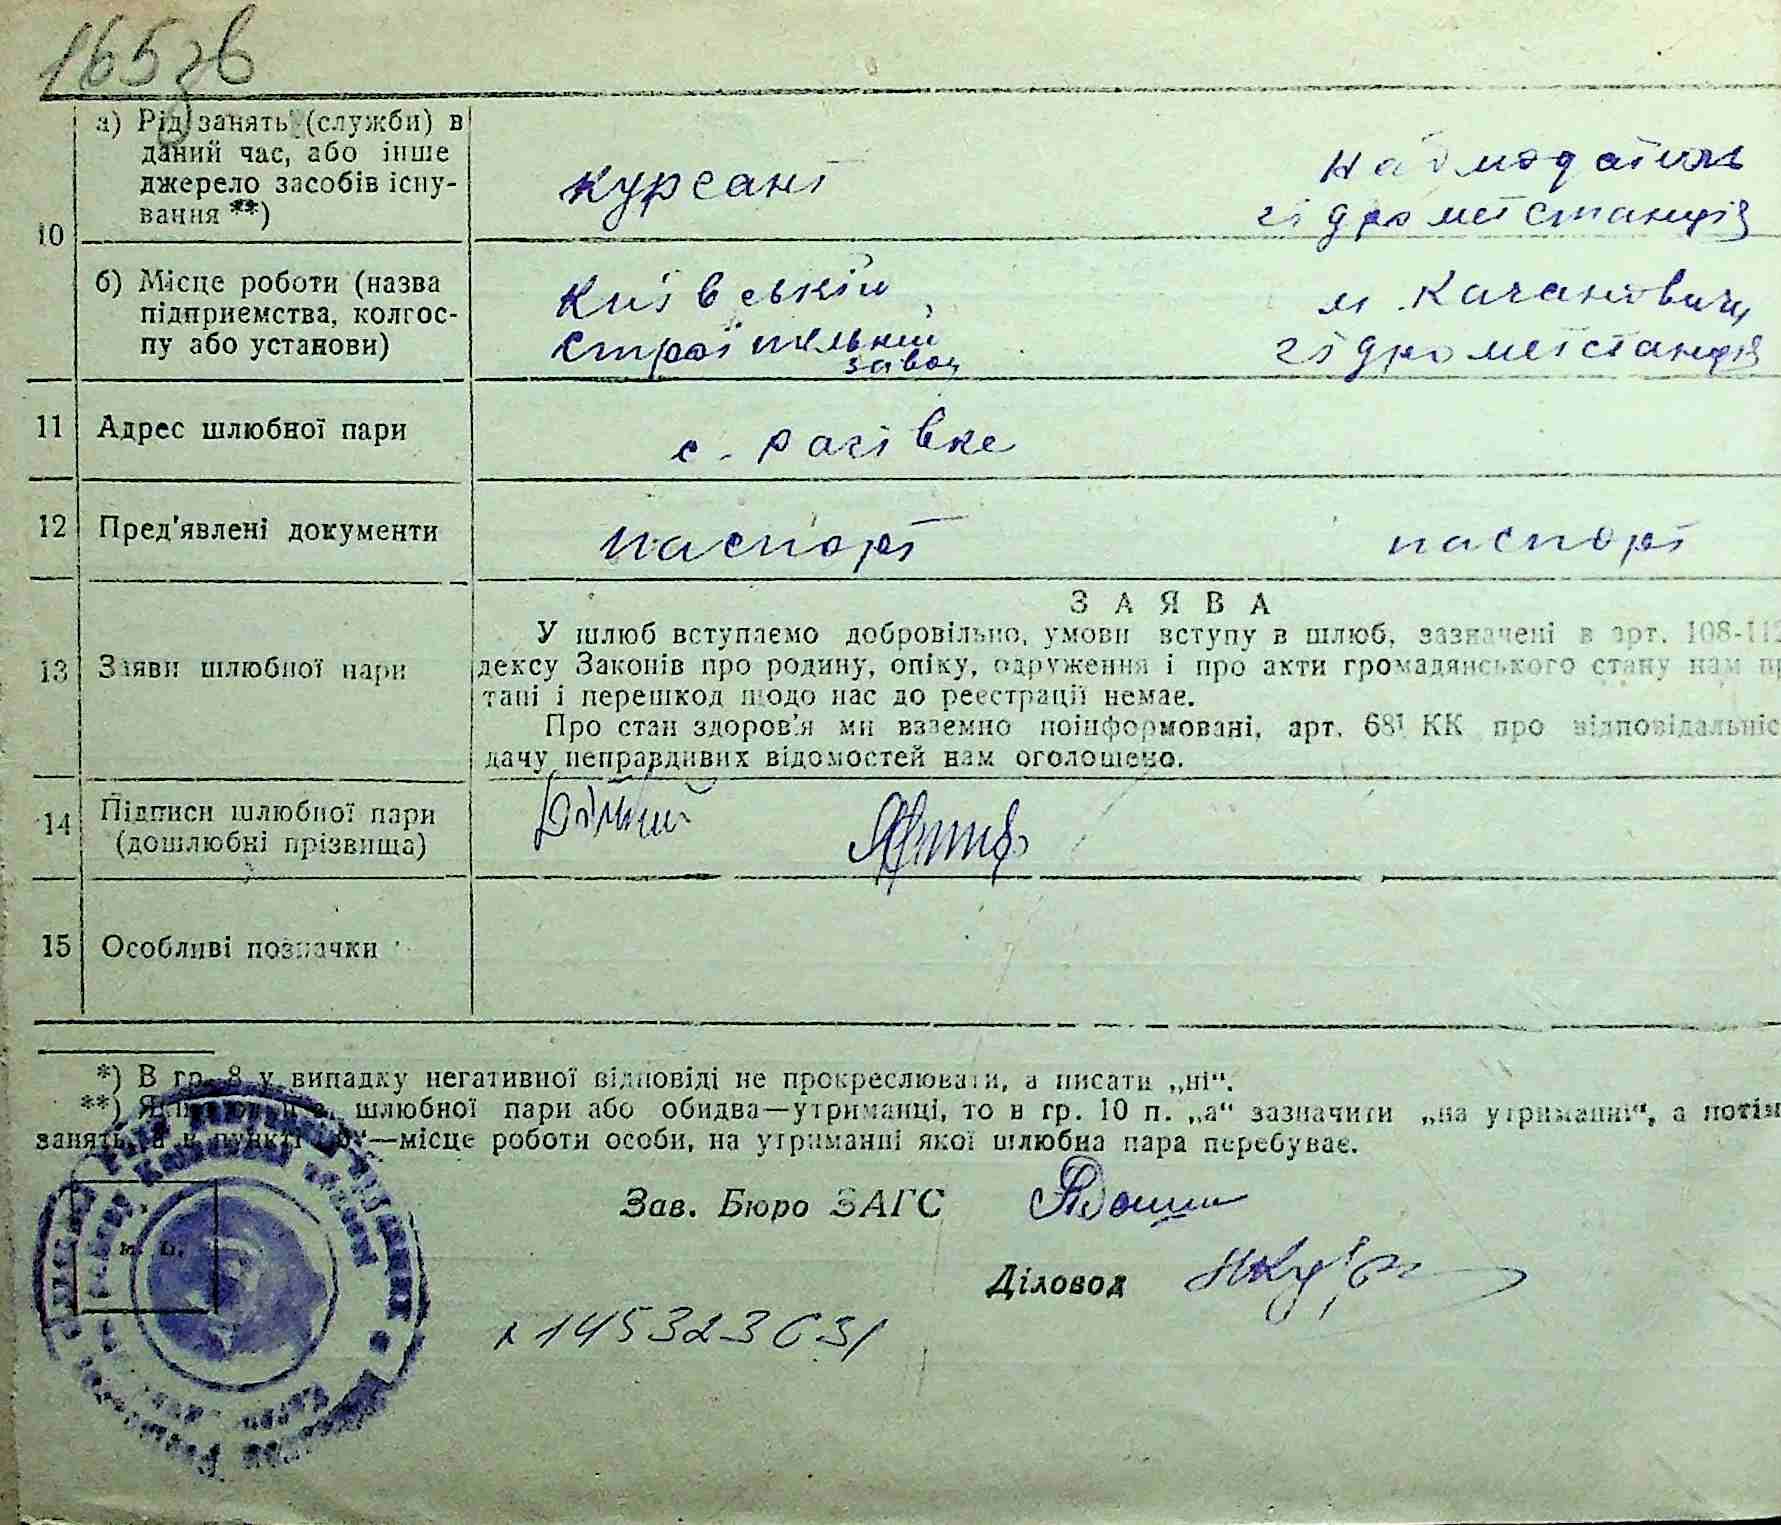 165зв
10
а) Рід занять (служби) в
даний час, або інше
джерело засобів існу-
вання **)
курсант
гідрометстанція
б) Місце роботи (назва
підприемства, колгос-
пу або установи)
Київський
завод
м Качановичі
гідрометстанція
11 Адрес шлюбної пари
с. Рагівке
12 Пред'явлені документи
паспорт паспорт
13 Заяви шлюбної пари
ЗАЯВА
У шлюб вступаємо добровільно, умови вступу в шлюб, зазначені в арт. 108-112
дексу Законів про родину, опіку, одруження і про акти громадянського стану нам
тані і перешкод щодо нас до реєстрації немає.
Про стан здоров'я ми взаємно поінформовані, арт. 68¹ КК про відповідальніс
дачу неправдивих відомостей нам оголошено.
14 Підписи шлюбної пари
(дошлюбні прізвища)
15 Особливі позначки
*) В гр. 8 у випадку негативної відповіді не прокреслювати, а писати „ні“.
**) шлюбної пари або обидва—утриманці, то в гр. 10 п. „а“ зазначити „на утриманні“, а потім
занять, а в пункті —місце роботи особи, на утриманні якої шлюбна пара перебуває.
Зав. Бюро ЗАГС
м. п.
Діловод